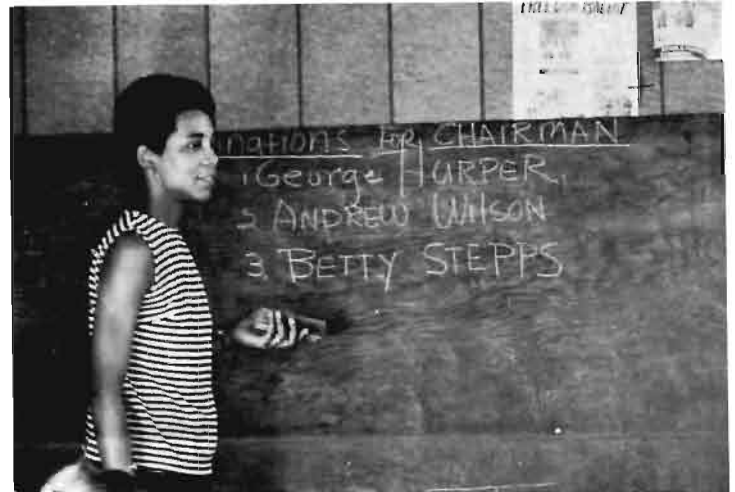 FREEDOM BALLOT
nations for CHAIRMAN
1 George HARPER
2 ANDREW WilSON
3. BETTY STEPPS